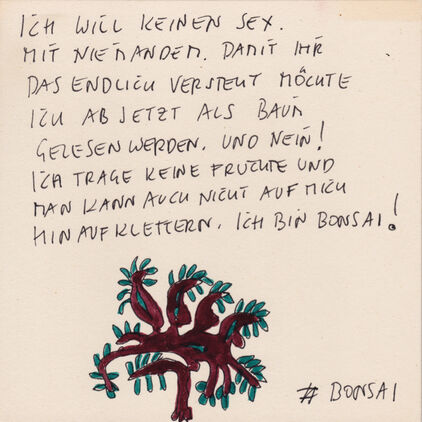 ICH WILL KEINEN SEX.
MIT NIEMANDEM. DAMIT IHR
DAS ENDLICH VERSTEHT MÖCHTE
ICH AB JETZT ALS BAUM
GELESEN WERDEN. UND NEIN!
ICH TRAGE KEINE FRÜCHTE UND
MAN KANN AUCH NICHT AUF MICH
HINAUFKLETTERN. ICH BIN BONSAI!
# BONSAI